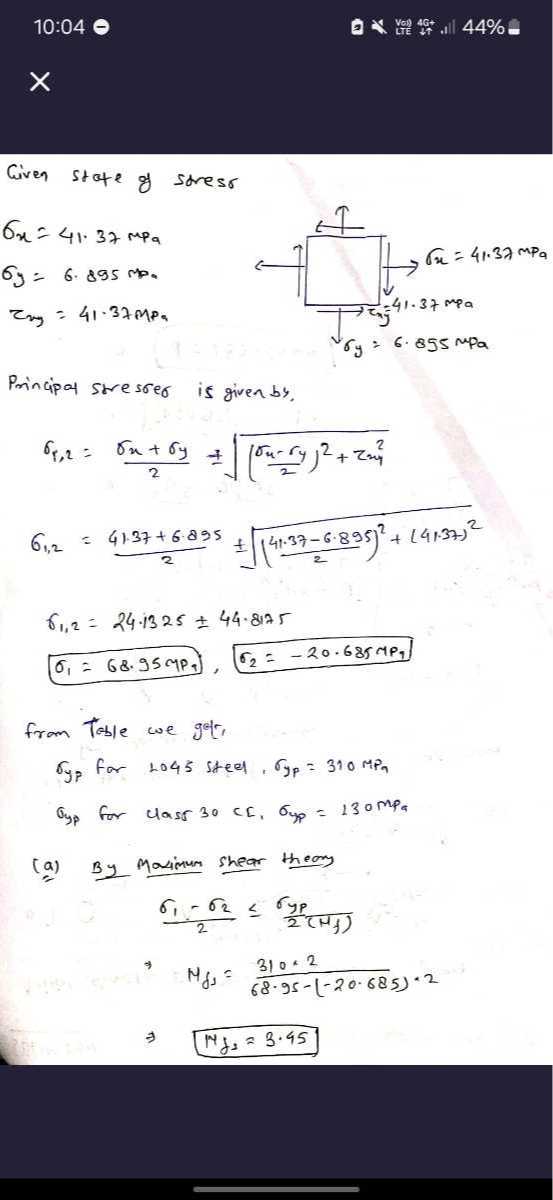 10:04
Vo)) 4G+ 44%
LTE
Given state of stress
σx = 41.37 MPa
σy = 6.895 MPa
τxy = 41.37 MPa
σx = 41.37 MPa
τxy=41.37 MPa
σy = 6.895 MPa
Principal stresses is given by,
σ1,2 = (σx + σy)/2 ± √(((σx-σy)/2)² + τxy²)
σ1,2 = (41.37 + 6.895)/2 ± √(((41.37-6.895)/2)² + (41.37)²)
σ1,2 = 24.1325 ± 44.8175
σ1 = 68.95 MPa , σ2 = -20.685 MPa
from Table we get,
σyp for 1045 steel, σyp = 310 MPa
σyp for class 30 CI, σyp = 130 MPa
(a) By Maximum shear theory
(σ1 - σ2)/2 ≤ σyp/2(Nf)
⇒ Nfs = (310 × 2)/(68.95-(-20.685) × 2)
⇒ Nfs = 3.45